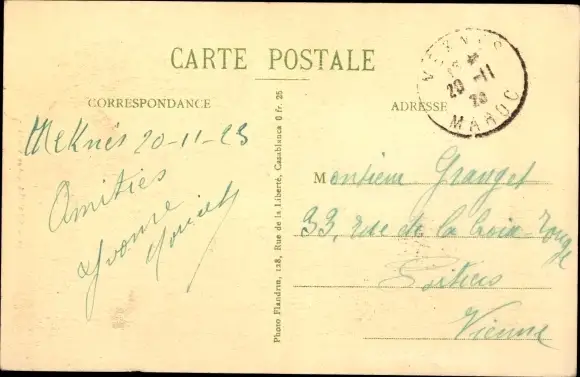 CARTE POSTALE
CORRESPONDANCE
ADRESSE
MEKNES
20-11
MAROC
Meknès 20-11-23
Amitiés
Yvonne
Photo Flandrin, 128, Rue de la Liberté, Casablanca 6 fr. 25
Monsieur Granget
33, rue de la Croix-Rouge
Poitiers
Vienne